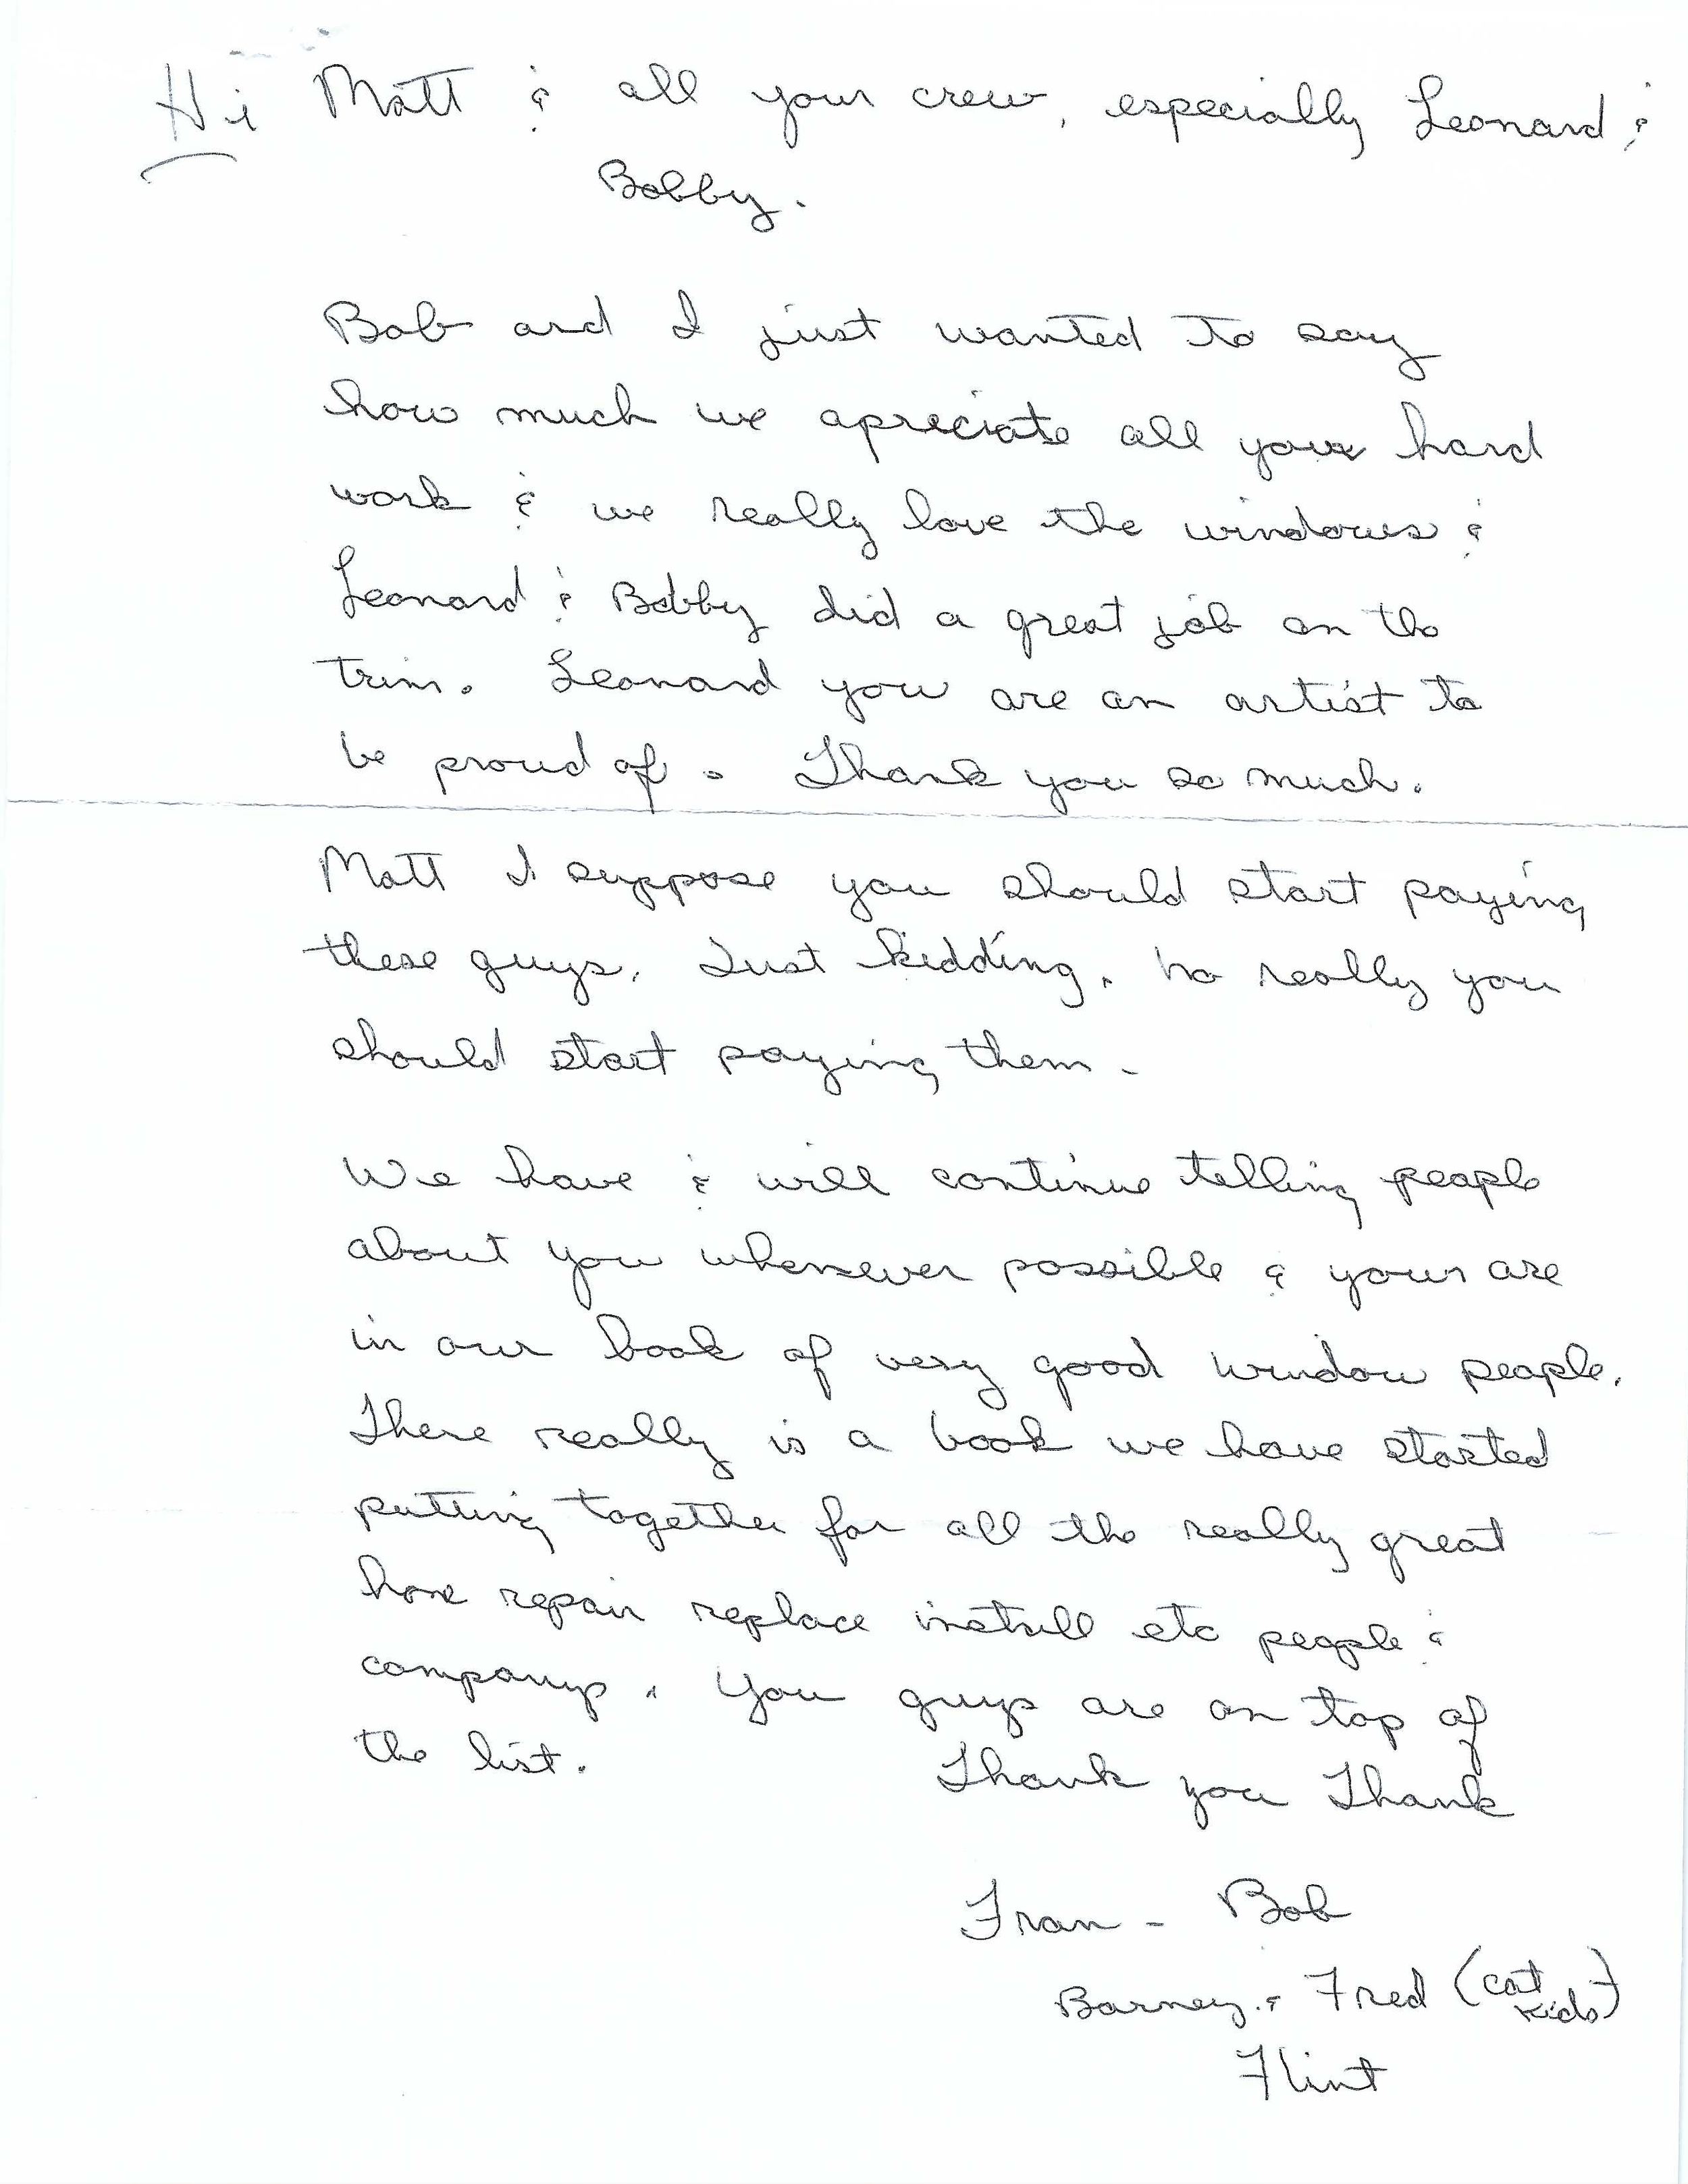 Hi Matt & all your crew, especially Leonard &
Bobby.
Bob and I just wanted to say
how much we apreciate all your hard
work & we really love the windows &
Leonard & Bobby did a great job on the
trim. Leonard you are an artist to
be proud of. Thank you so much.
Matt I suppose you should start paying
these guys. Just kidding. No really you
should start paying them.
We have & will continue telling people
about you whenever possible & your are
in our book of very good window people.
There really is a book we have started
putting together for all the really great
home repair replace install etc people &
companys. You guys are on top of
the list.
Thank you Thank
Fran - Bob
Barney & Fred (cat
kids)
Flint